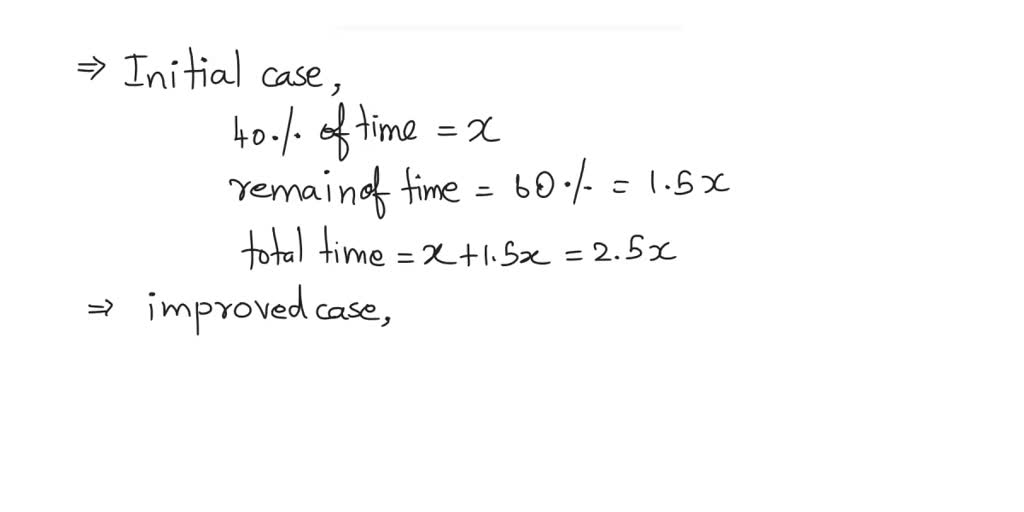 ⇒ Initial case,
40% of time = x
remain of time = 60% = 1.5x
total time = x + 1.5x = 2.5x
⇒ improved case,